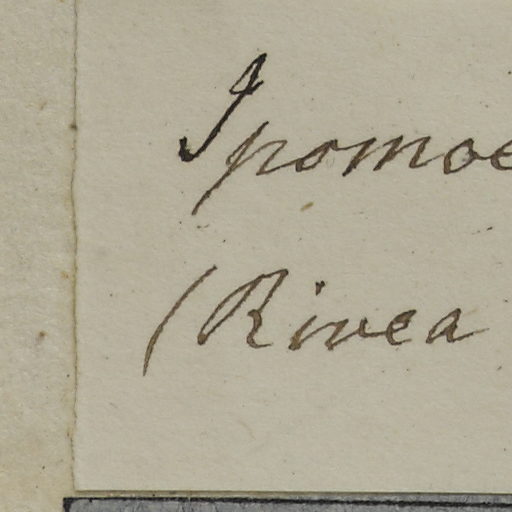 Ipomoe
(Rivea